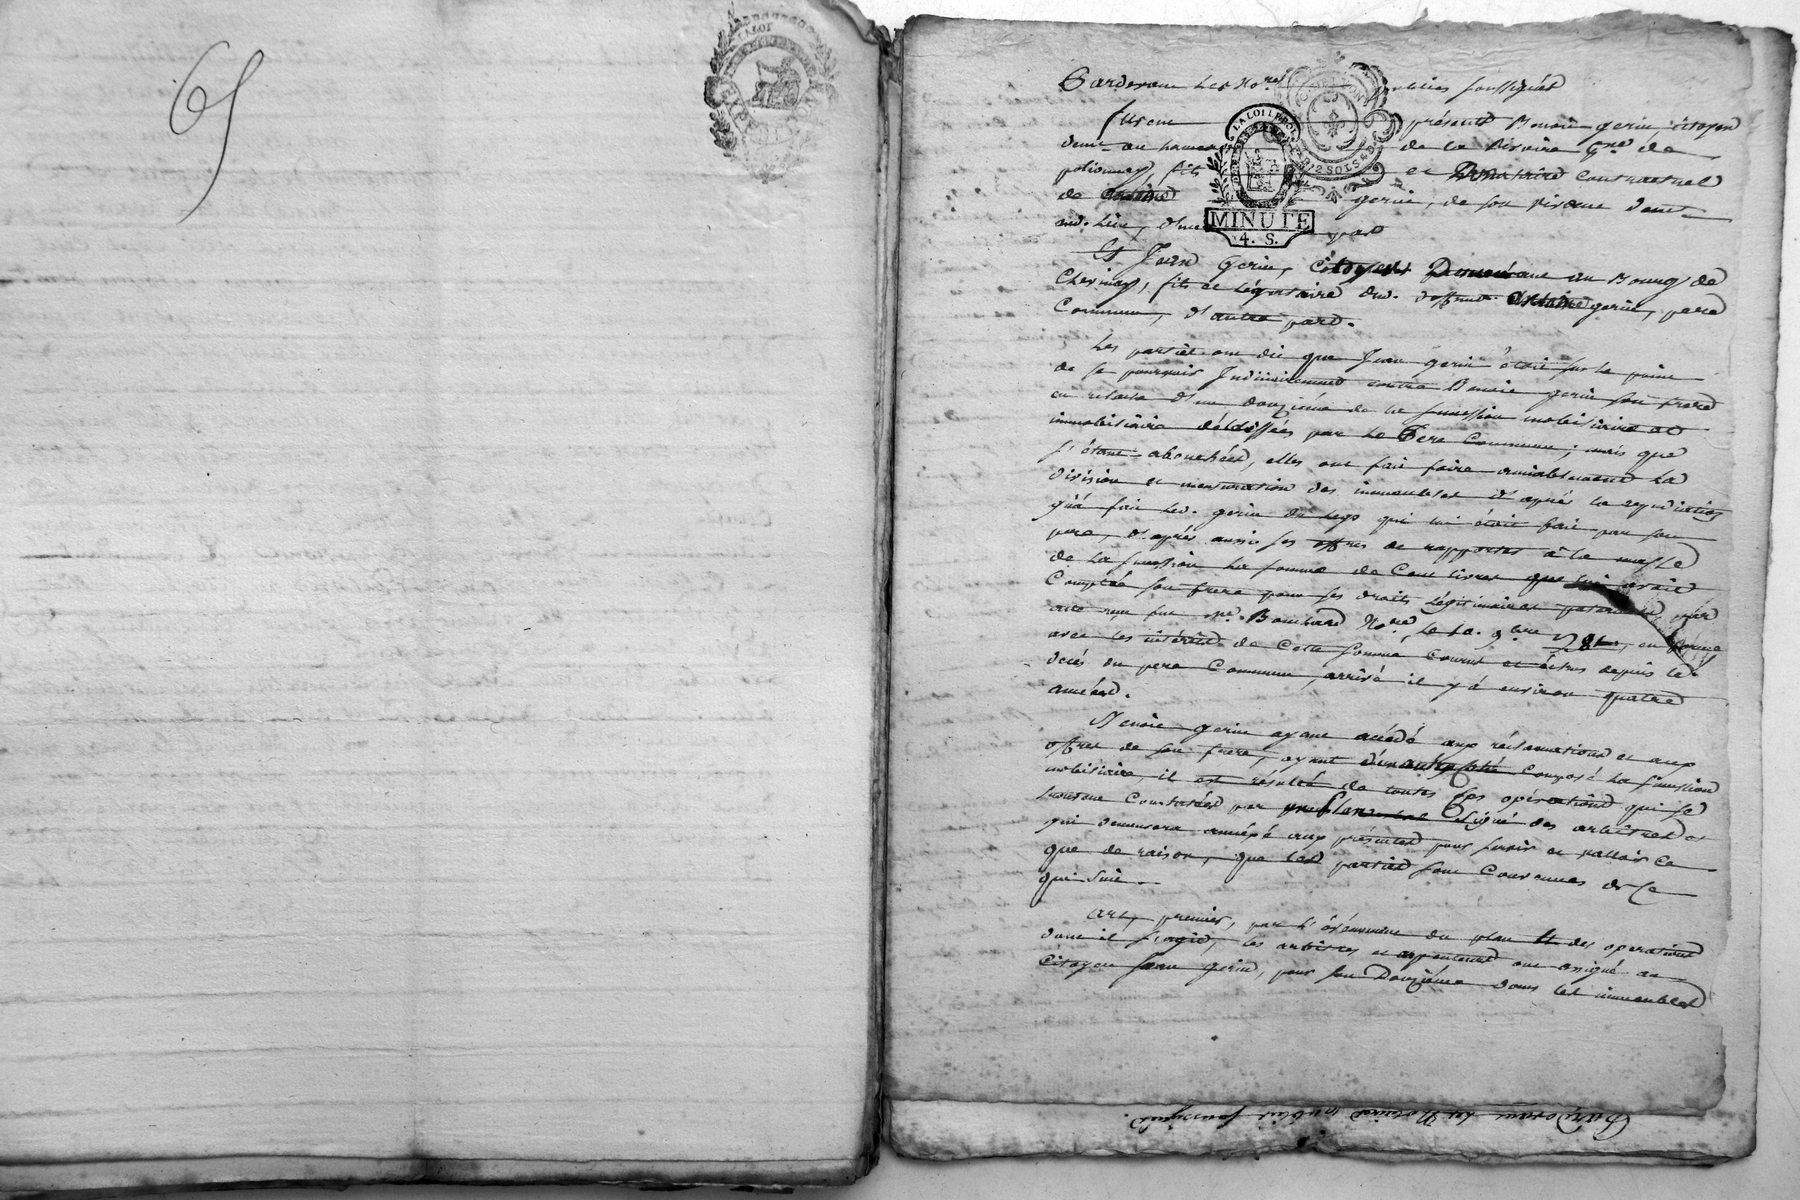 65
Pardevant les No.res publics soussignés
furent présents Benoit gerin, citoyen
demt. au hameau de la Riviere Cne. de
polionnay, fils et Donataire contractuel
de Antoine gerin, de son vivant demt.
aud. lieu, d'une part
Et Jean Gerin, citoyen Demeurant au Bourg de
Chevinay, fils et légataire dud. deffunt Antoine gerin, pere
Commun, d'autre part.
Les parties ont dit que Jean gerin étoit sur le point
de se pourvoir Judiciairement contre Benoit gerin son frere
en relache d'un douzième de la succession mobiliaire et
immobiliaire délaissées par le Pere Commun; mais que
s'étant abouchées, elles ont fait faire amiablement la
division et mensuration des immeubles d'après la répudiation
qu'a fait led. gerin du legs qui lui étoit fait par son
pere, d'après aussi ses offres de rapporter à la masse
de la succession la somme de Cent livres que lui avait
Comptée son frere pour ses droits légitimaires paternels par
acte reçu par Me. Bouchard No.re, le 10. 9bre en
avec les intérêts de Cette somme Courus et échus depuis le
décès du pere Commun, arrivé il y a environ quatre
années.
Benoit gerin ayant accédé aux réclamations et aux
offres de son frere, ayant d'un autre côté Composé la succession
mobiliaire, il est résulté de toutes les opérations qui se
trouvent Constatées par un plan signé des arbitres et
qui demeurera annéxé aux présentes pour servir et valloir ce
que de raison, que les parties sont Convenues de Ce
qui suit.
Art. premier, par l'événement du plan et des operations
dont il s'agit, les arbitres et arpenteurs ont assigné au
Citoyen Jean gerin, pour son Douzième dans les immeubles
LA LOI LE ROI
MINUTE
4. S.
Pardevant les Notaires publics soussignés.